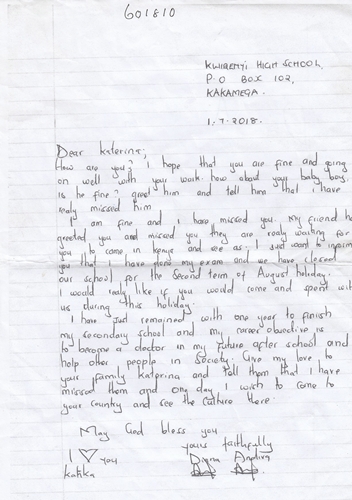 601810
KWIRENYI HIGH SCHOOL,
P.O BOX 102,
KAKAMEGA.
1.7.2018.
Dear Katerina;
How are you? I hope that you are fine and going
on well with your work. how about your baby boy.
is he fine? greet him and tell him that i have
realy missed him
I am fine and I have missed you. My friend has
greeted you and missed you they are realy waiting for
you to come in Kenya and see as. I just want to inform
you that I have done my exam and we have closed
our school for the Second term of August holiday.
I would realy like if you would come and spent with
us during this holiday.
I have Just remained with one year to finish
my secondary school and my career objective is
to become a doctor in my future after school and
help other people in society. Give my love to
your family Katerina and tell them that I have
missed them and one day I wish to come to
your country and see the culture there.
May God bless you
yours faithfully
I you
Katika